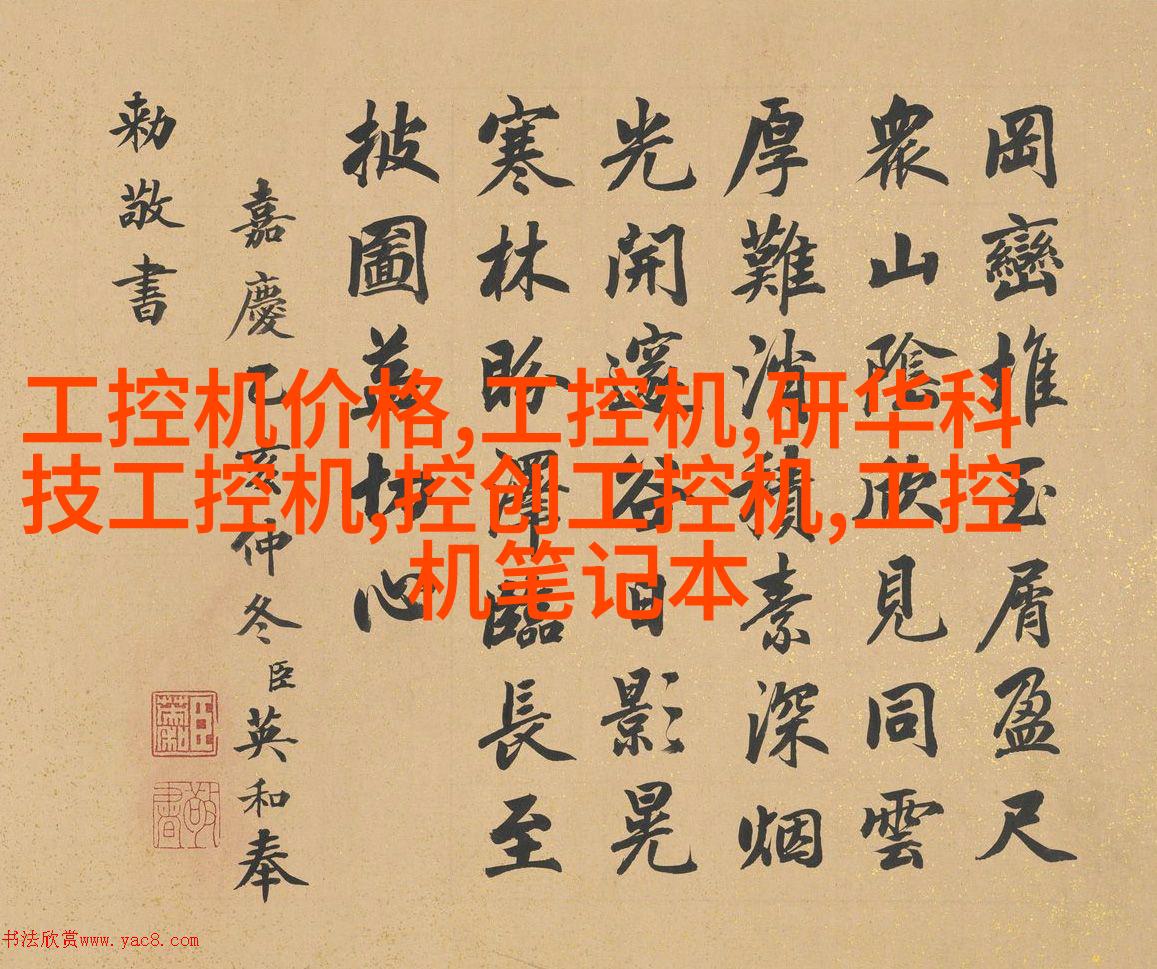 岡巒堆玉屑盈尺
衆山陰欣見同雲
厚難消積素深烟
光開邃谷日影晃
寒林盼澤臨長至
披圖益切心
嘉慶乙亥仲冬臣英和奉
勅敬書
敬書
工控机价格,工控机,研华科
技工控机,控创工控机,工控
机笔记本
书法欣赏www.yac8.com